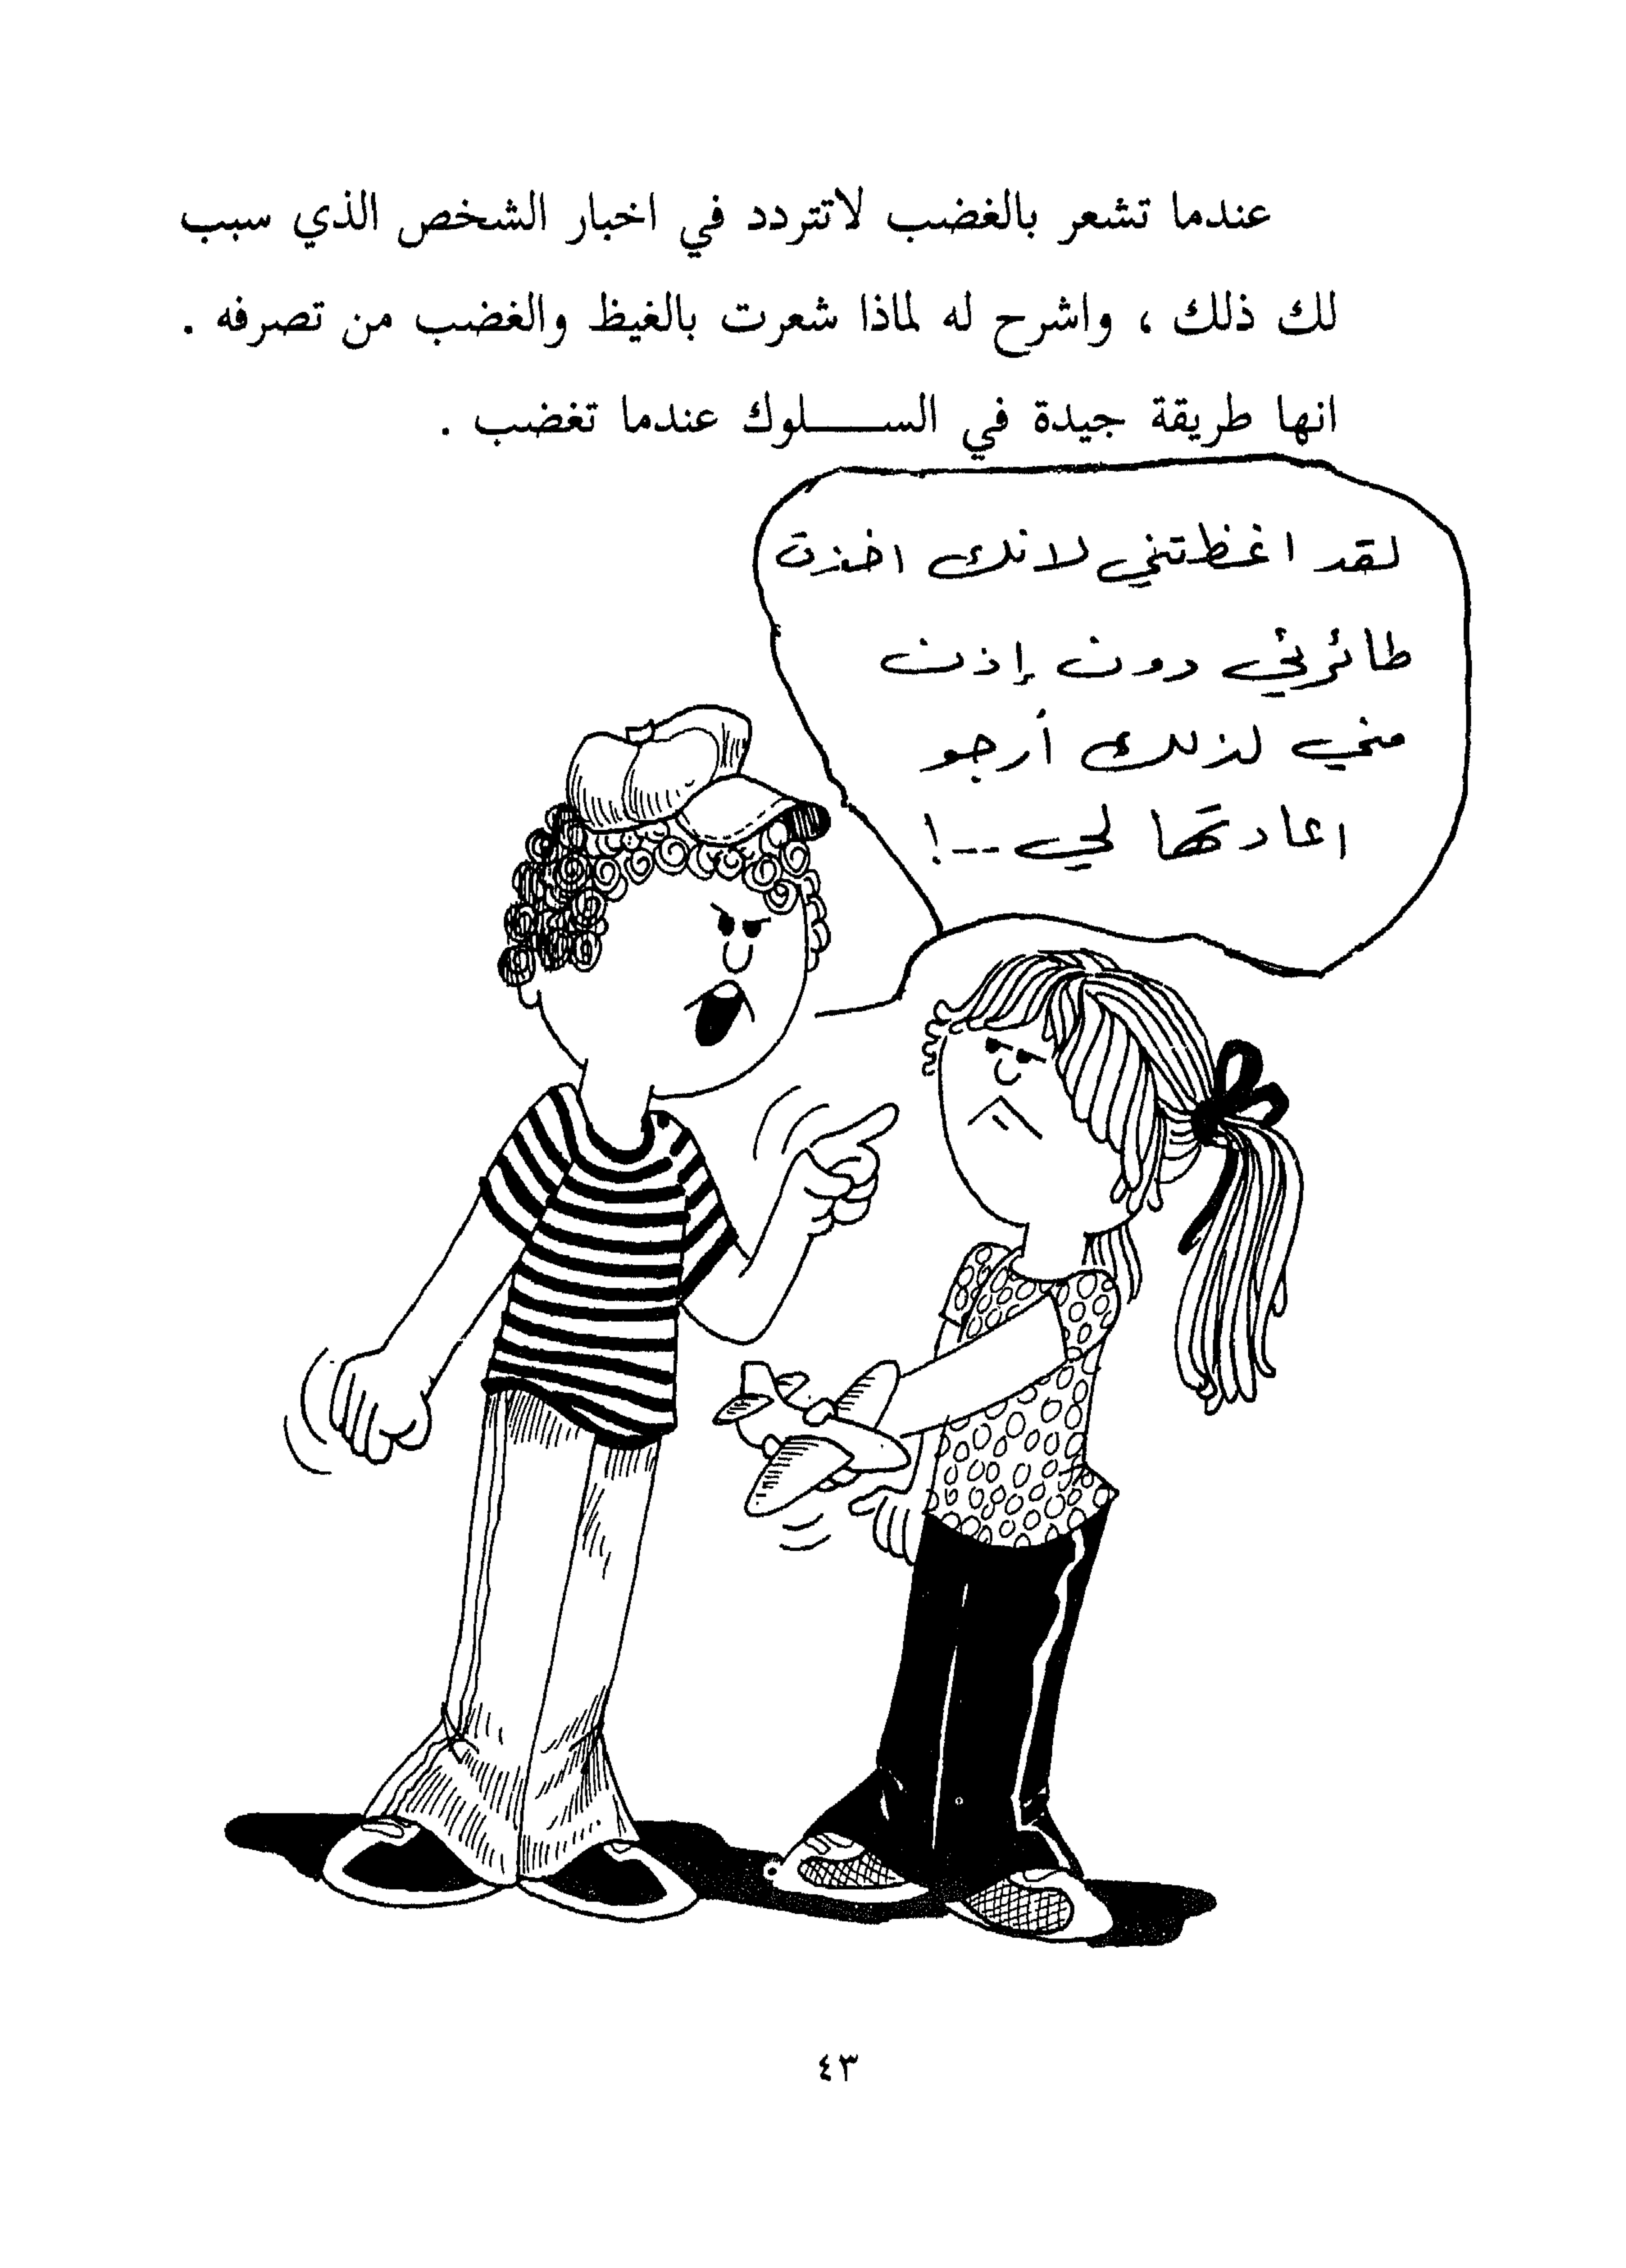 عندما تشعر بالغضب لاتتردد في اخبار الشخص الذي سبب
لك ذلك ، واشرح له لماذا شعرت بالغيظ والغضب من تصرفه .
انها طريقة جيدة في الســـــلوك عندما تغضب .
لقد اغظتني لانك اخذت
طائرتي دون إذن
مني لذلك أرجو
اعادتها لي --!
٤٣